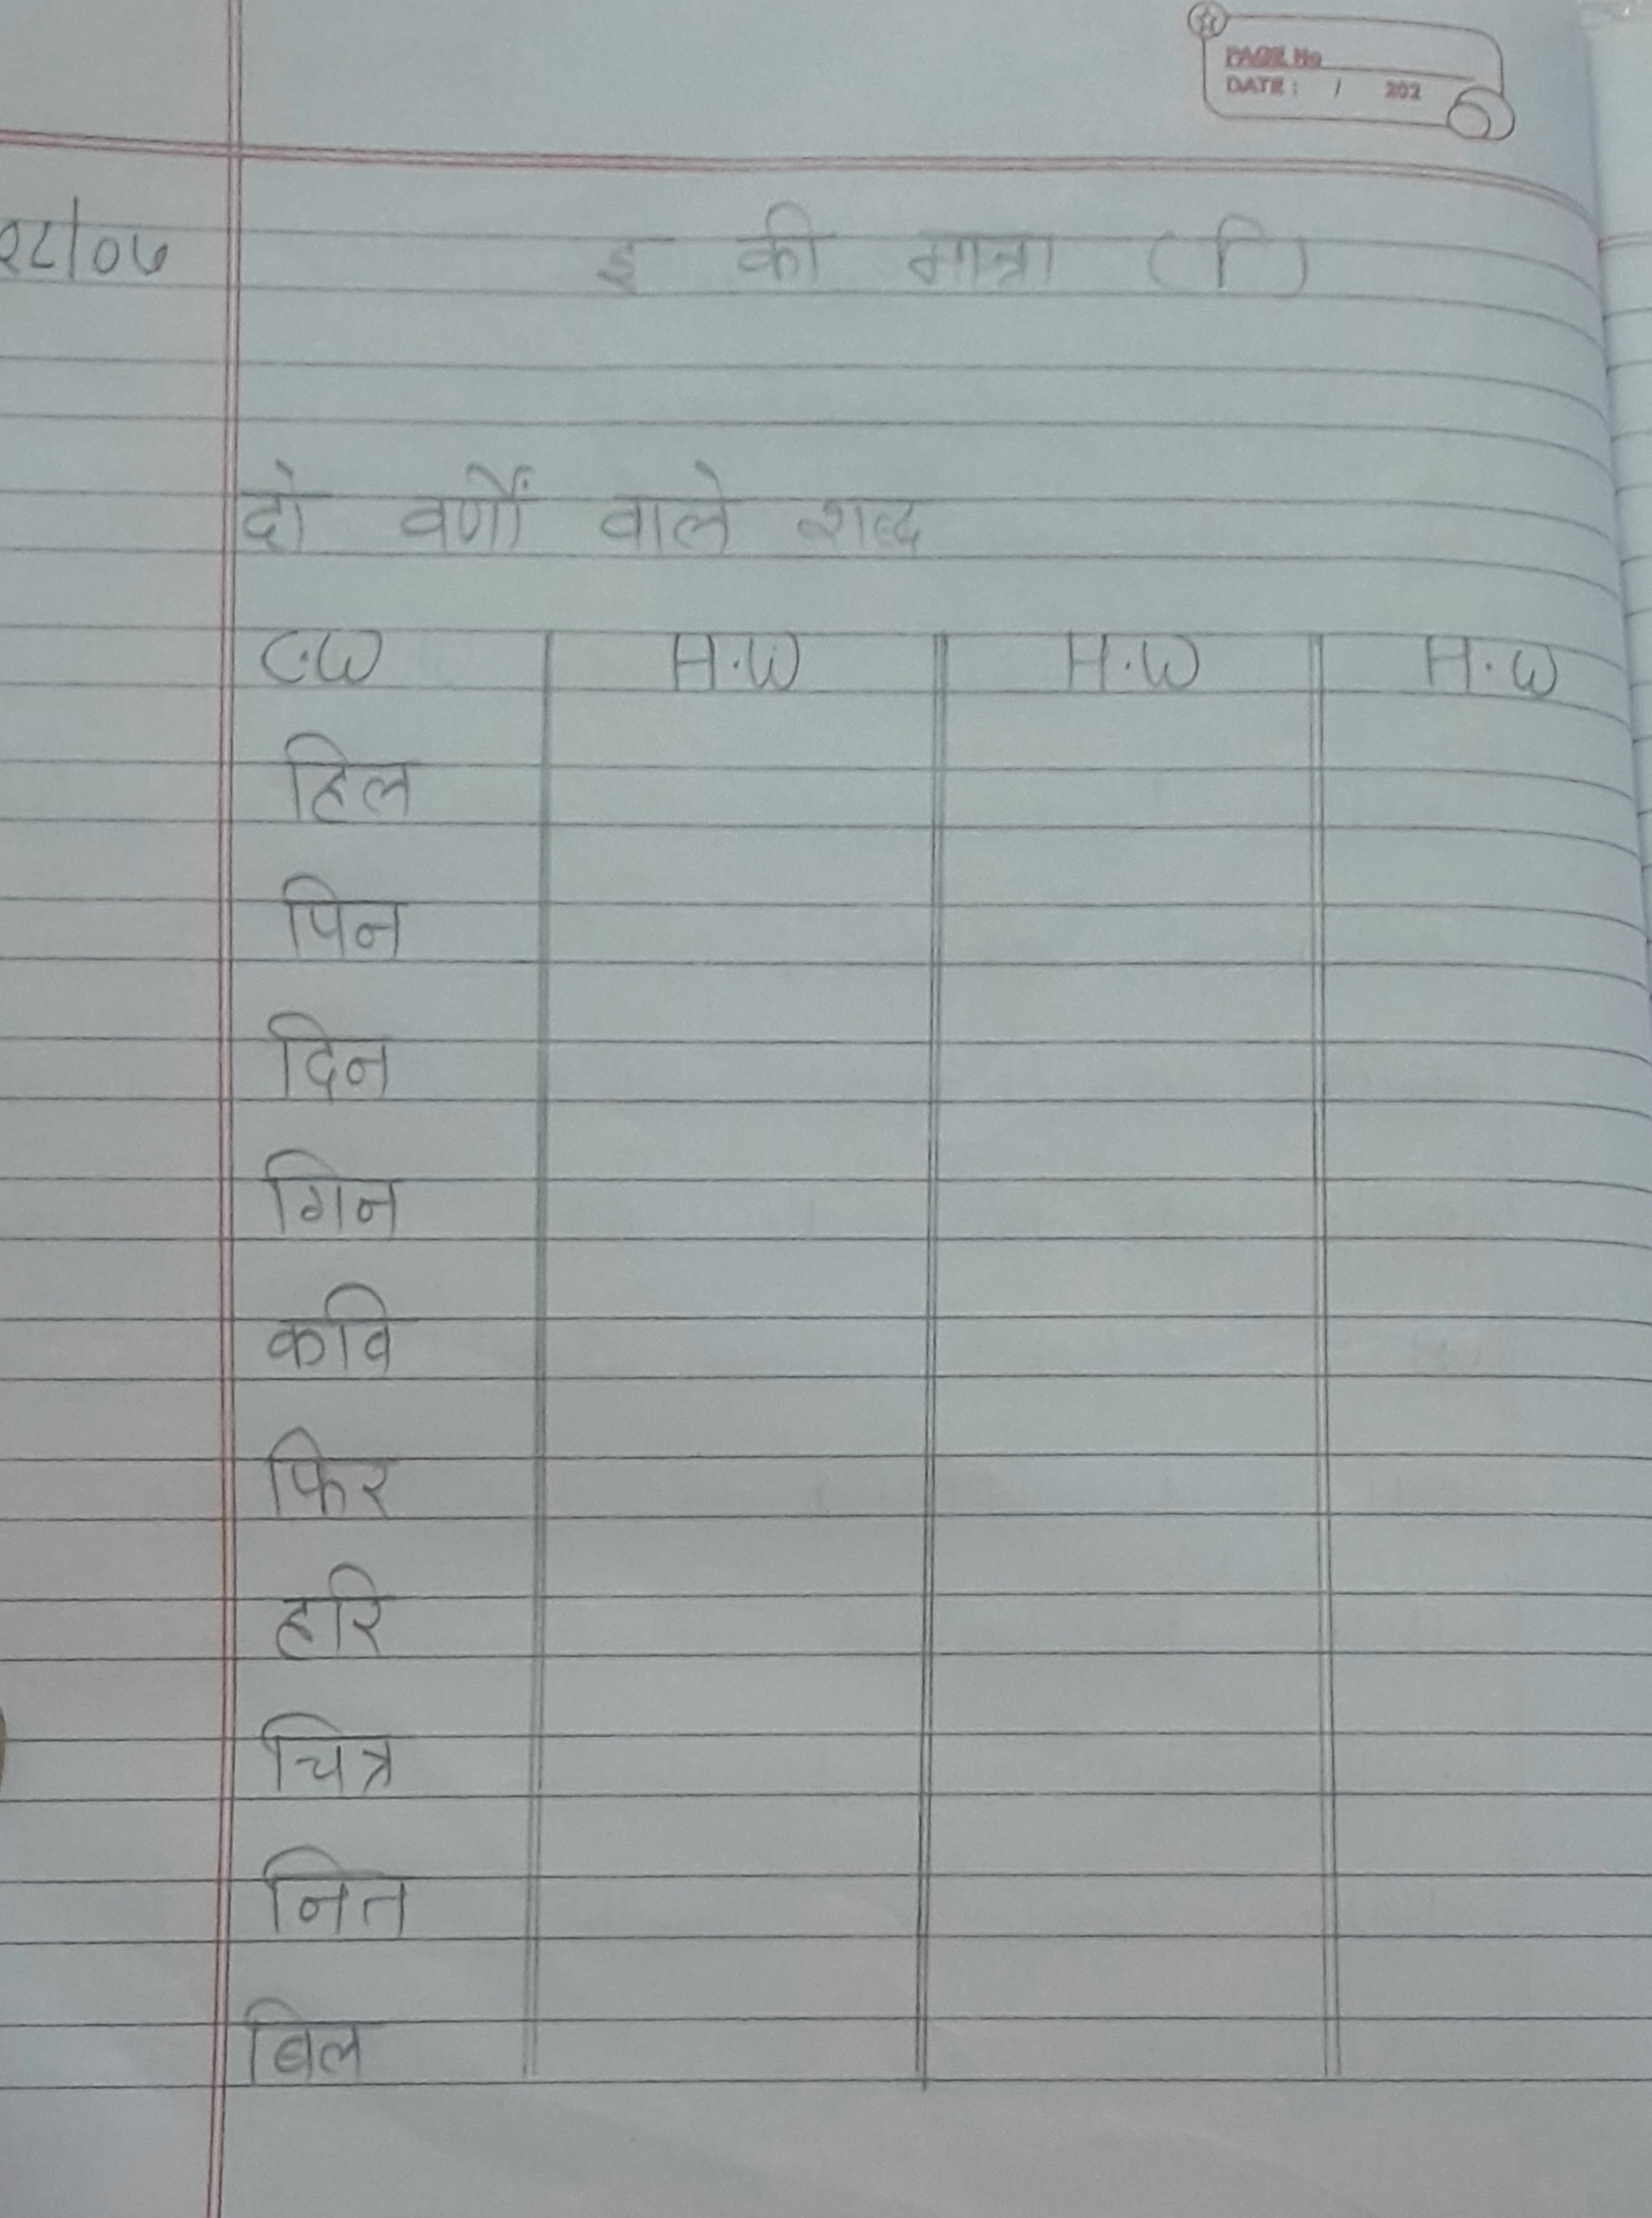 PAGE No
DATE : / 202
२८/०७ इ की मात्रा (ि)
दो वर्णों वाले शब्द
C.W H.W H.W H.W
हिल
पिन
दिन
गिन
कवि
फिर
हरि
चित्र
नित
बिल